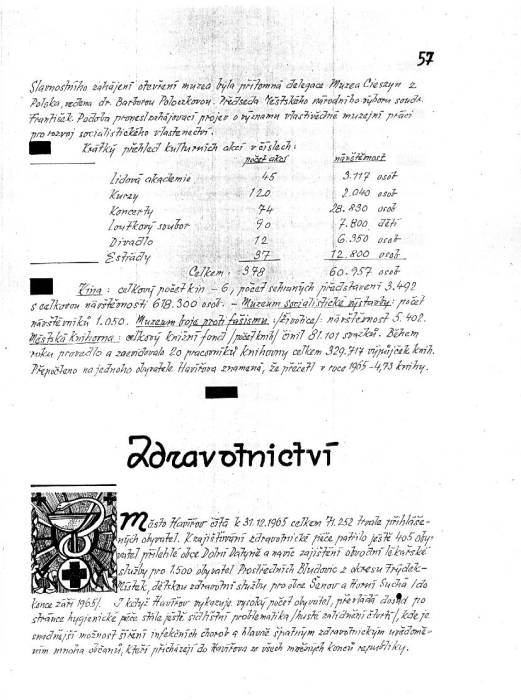 57
Slavnostního zahájení otevření muzea byla přítomna delegace Muzea Cieszyn z
Polska, vedena dr. Barborou Poloczkovou. Předseda Městského národního výboru soudr.
František Podola pronesl zahajovací projev o významu vlastivědné muzejní práci
pro rozvoj socialistického vlastenectví.
Krátký přehled kulturních akcí v číslech:
počet akcí návštěvnost
Lidová akademie 45 3.117 osob
Kurzy 120 2.040 osob
Koncerty 74 28.830 osob
Loutkový soubor 90 7.800 dětí
Divadlo 12 6.350 osob
Estrády 37 12.800 osob
Celkem: 378 60.957 osob
Kina: celkový počet kin - 6, počet sehraných představení 3.492
s celkovou návštěvností 618.300 osob. - Muzeum socialistické výstavby: počet
návštěvníků 1.050. Muzeum boje proti fašismu /Životice/ návštěvnost 5.402.
Městská knihovna: celkový knižní fond /počet knih/ činil 81.101 svazků. Během
roku provedlo a zaevidovalo 20 pracovníků knihovny celkem 329.717 výpůjček knih.
Přepočteno na jednoho obyvatele Havířova znamená, že přečetl v roce 1965 - 4,73 knihy.
Zdravotnictví
Město Havířov čítá k 31.12.1965 celkem 71.252 trvale přihláše-
ných obyvatel. K zajišťování zdravotnické péče patřilo ještě 405 oby-
vatel přilehlé obce Dolní Datyně a navíc zajištění obvodní lékařské
služby pro 1.500 obyvatel Prostředních Bludovic z okresu Frýdek-
Místek, dětskou zdravotní službu pro obce Šenov a Horní Suchá /do
konce září 1965/. I když Havířov vykazuje vysoký počet obyvatel, převládá dosud po
stránce hygienické péče stále ještě sídlištní problematika /husté zalidnění čtvrtí/, kde je
snadnější možnost šíření infekčních chorob a hlavně špatným zdravotnickým uvědomě-
ním mnoha občanů, kteří přicházejí do Havířova ze všech možných konců republiky.